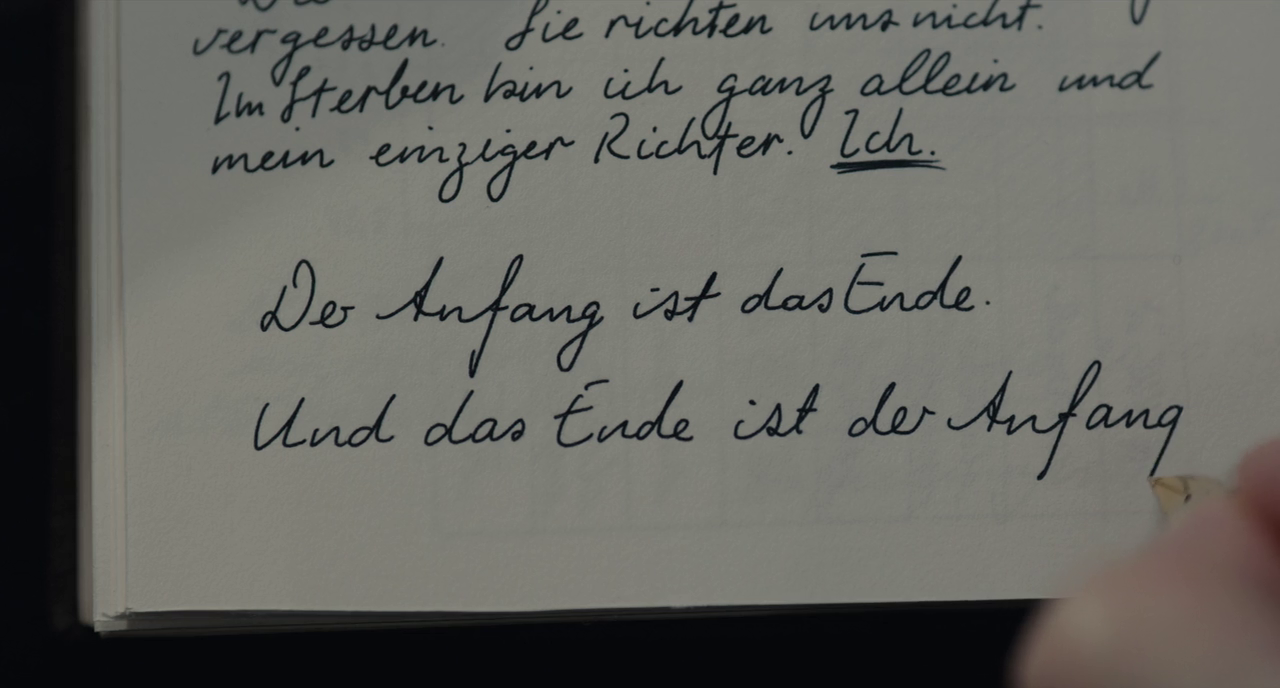 vergessen. Sie richten uns nicht.
Im Sterben bin ich ganz allein und
mein einziger Richter. Ich.
Der Anfang ist das Ende.
Und das Ende ist der Anfang